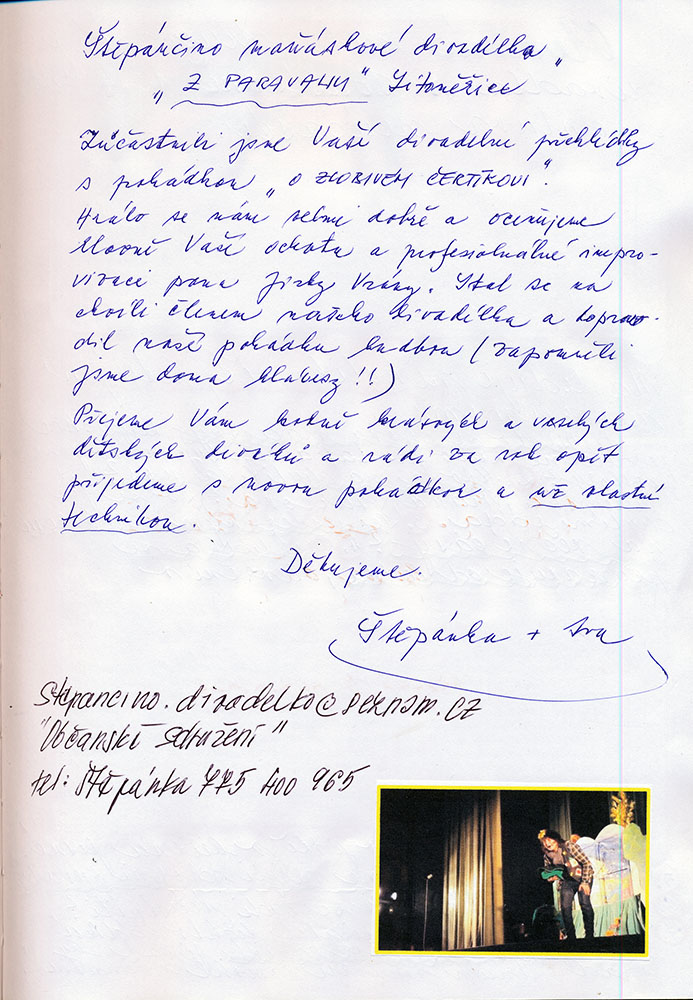 Štěpánčino maňáskové divadélko
„Z PARAVANU“ Litoměřice
Zúčastnili jsme Vaší divadelní přehlídky
s pohádkou „O ZLOBIVÉM ČERTÍKOVI“.
Hrálo se nám velmi dobře a oceňujeme
hlavně Vaši ochotu a profesionální impro-
vizaci pana Jirky Vrány. Stal se na
chvíli členem našeho divadélka a doprovo-
dil naši pohádku hudbou (zapomněli
jsme doma klávesy!!)
Přejeme Vám hodně krásných a veselých
dětských diváků a rádi za rok opět
přijedeme s novou pohádkou a už vlastní
technikou.
Děkujeme.
Štěpánka + Iva
stepancino.divadelko@seznam.cz
"Občanské sdružení"
tel: Štěpánka 775 400 965